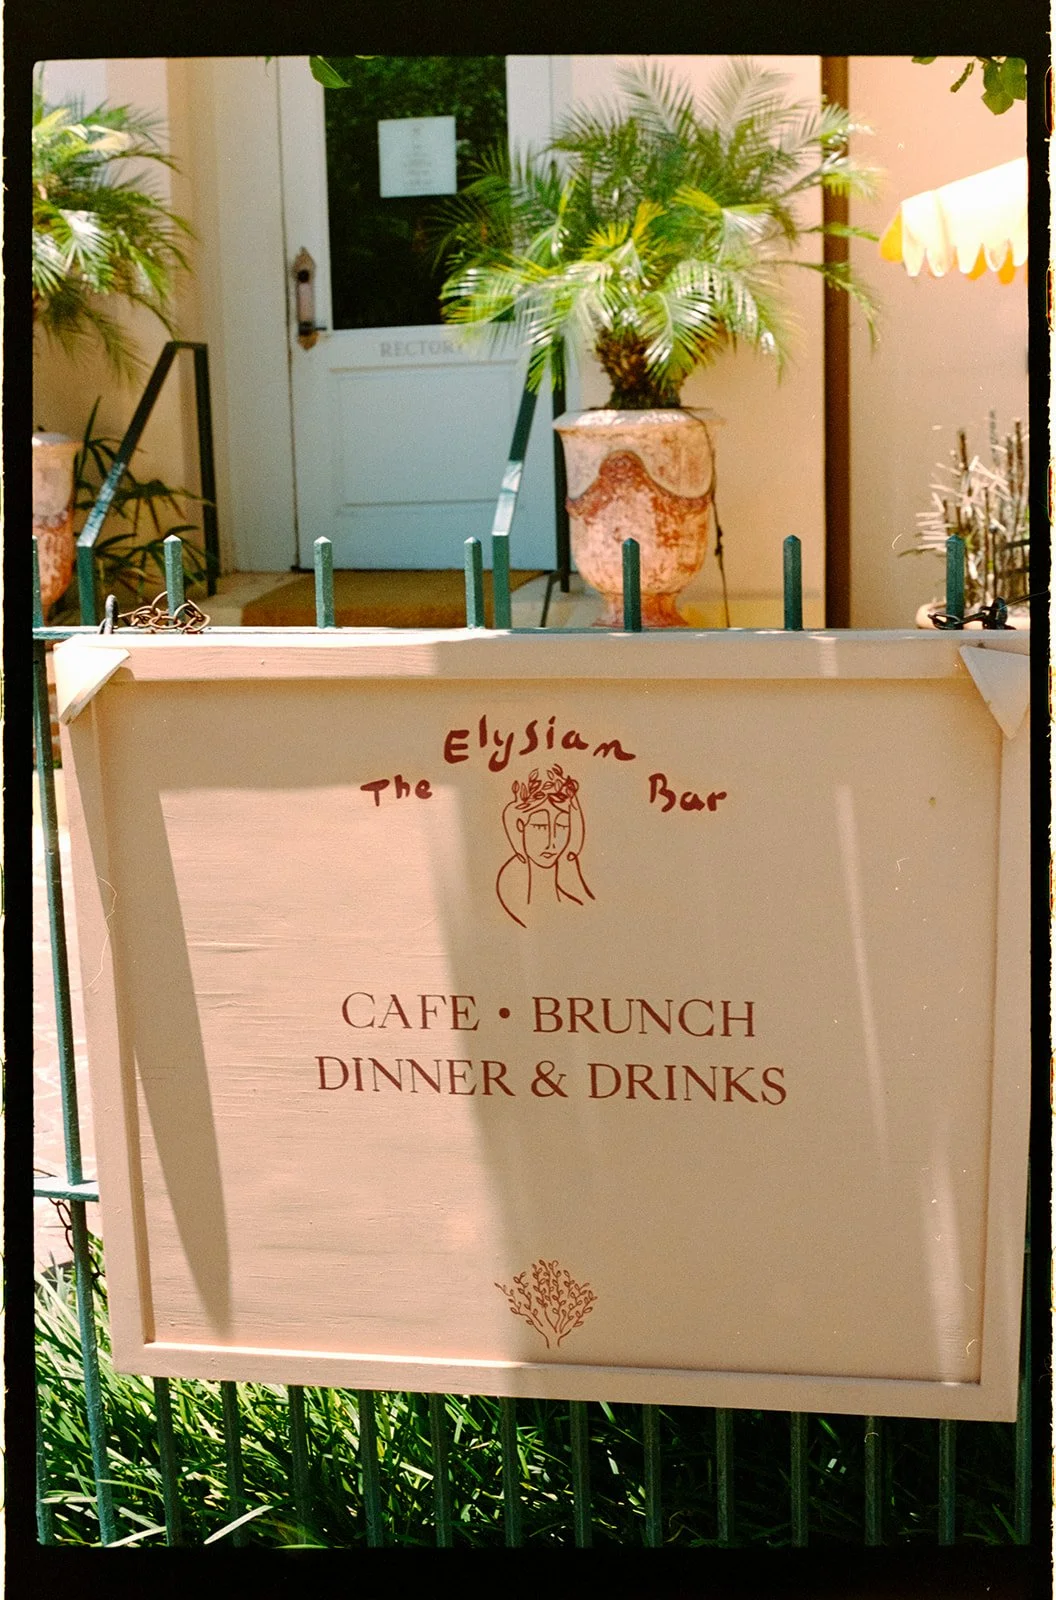 RECTORY
The Elysian Bar
CAFE • BRUNCH
DINNER & DRINKS